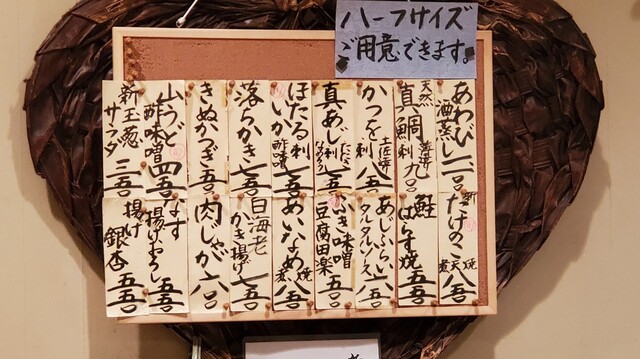 ハーフサイズ
ご用意できます。
あわび
酒蒸し
二二〇
天然
真鯛
薄造り
刺
九〇〇
かつを
土佐造り
刺
八五〇
真あじ
たたき
なめろう
刺
七五〇
ほたる
いか
刺
酢味噌
七五〇
落らかき
七五〇
きぬかつぎ
五〇〇
山うど
酢味噌
四五〇
新玉葱
サラダ
三五〇
新
たけのこ
焼
天
煮
八五〇
鮭
はらす焼
五五〇
あじふらい
タルタルソース
六五〇
ふき味噌
豆腐田楽
五〇〇
あいなめ
焼
煮
八五〇
白海老
かき揚げ
七五〇
肉じゃが
六〇〇
なす
揚げおろし
五五〇
揚げ
銀杏
五五〇